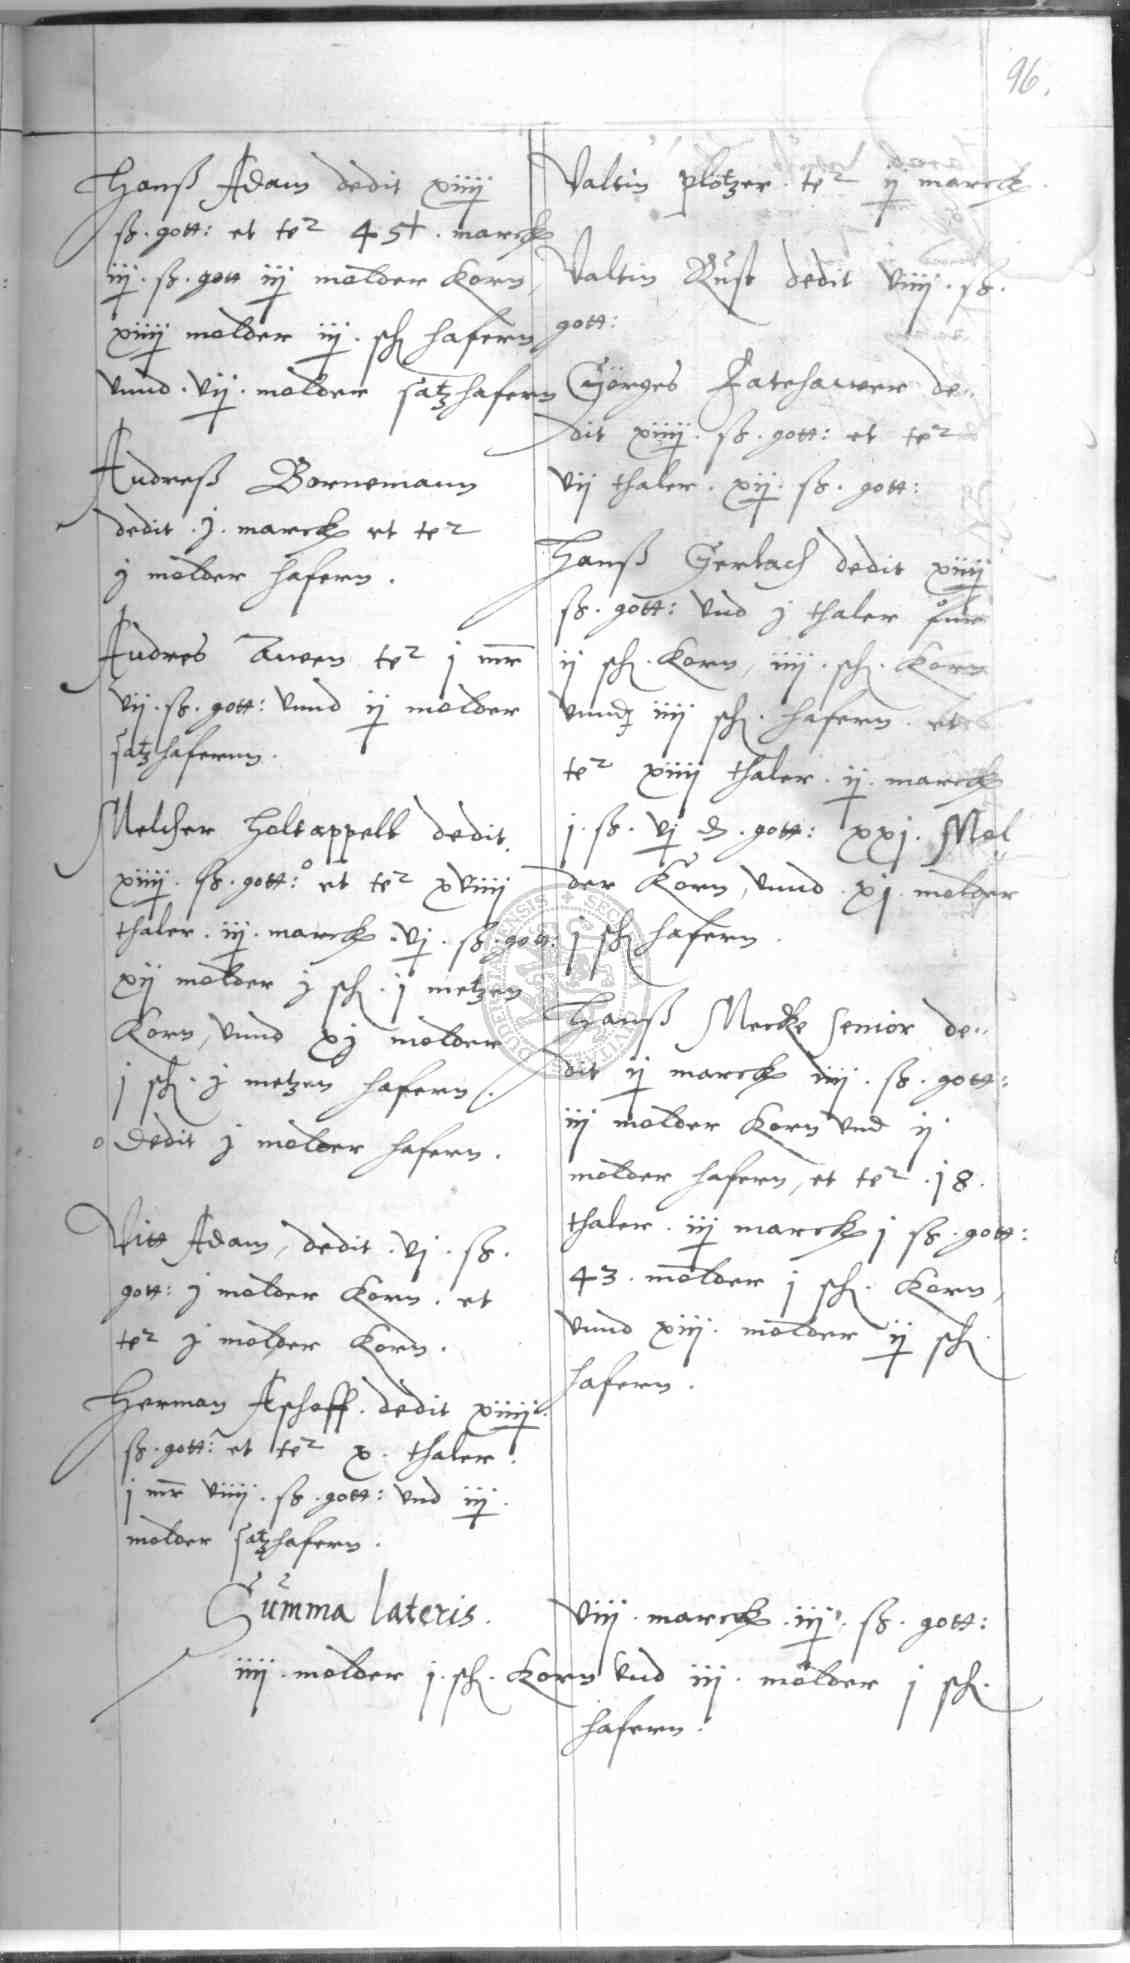 96.
Hanß Adam dedit xiiij
ß. gott: et ter 45½. marck
iij. ß. gott iij molder Korn,
xiiij molder iij. sch hafern
vnnd. vij. molder satzhafern
Andreß Bornemann
dedit. j. marck et ter
j molder hafern.
Andres Awen ter j mr
vij. ß. gott: vnnd ij molder
satzhafernn.
Melcher Holtappell dedit
xiiij. ß. gott: o et ter xviiij
thaler. iij. marck. vj. ß. gott:
xij molder j sch. j metzen
Korn, vnnd xj molder
j sch. j metzen hafern.
o dedit j molder hafern.
Vitt Adam, dedit. vj. ß.
gott: j molder Korn. et
ter j molder Korn.
Herman Aschoff. dedit xiiij.
ß. gott: et ter x. thaler.
j mr viiij. ß. gott: vnd iij.
molder satzhafern.
Valtin plötzer. ter ij marck.
Valtin Rust dedit viiij. ß.
gott:
Görges de..
dit xiiij. ß. gott: et ter
vij thaler. xij. ß. gott:
Hanß Gerlach dedit xiiij
ß. gott: vnd j thaler fur
ij sch. Korn, iiij. sch. Korn
vnnd iiij sch. hafern. et
ter xiiij thaler. ij. marck
j. ß. vj d. gott: xxj. Mol
der Korn, vnnd. xj. molder
j sch hafern.
Hanß Mecke senior de..
dit ij marck iiij. ß. gott:
iij molder Korn vnd ij
molder hafern, et ter. 18.
thaler. iij marck j ß. gott:
43. molder j sch. Korn,
vnnd xiij. molder ij sch
hafern.
Summa lateris. viij. marck. iij. ß. gott:
iiij. molder j. sch. Korn vnd iij. molder j sch.
hafern.